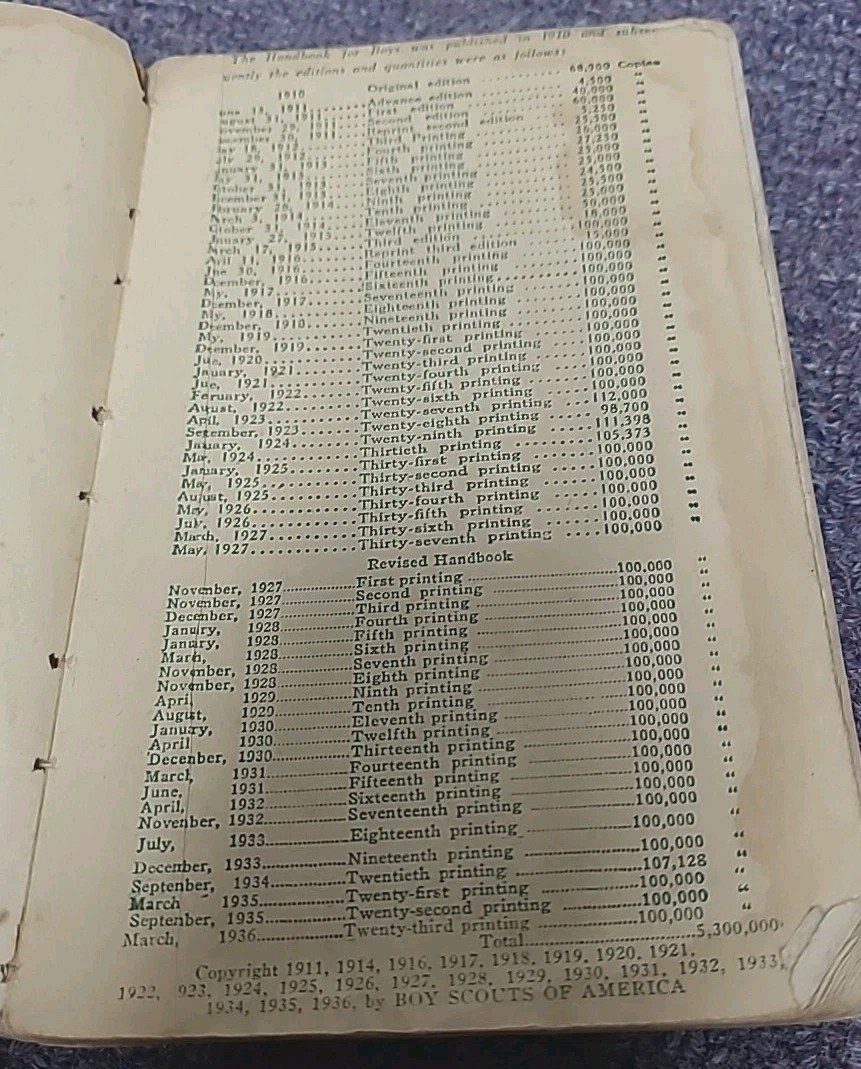 The Handbook for Boys was published in 1910 and subse-
quently the editions and quantities were as follows:
1910 Original edition ........ 68,900 Copies
une 13, 1911......Advance edition ........ 4,500 "
ugust 31, 1911......First edition ........ 40,000 "
ovember 29, 1911......Second edition ........ 60,000 "
ecember 30, 1911......Reprint second edition ........ 5,250 "
ay 18, 1912......Third Printing ........ 25,500 "
uly 29, 1912......Fourth printing ........ 26,000 "
nuary 31, 1913......Fifth printing ........ 27,250 "
ay 31, 1913......Sixth printing ........ 25,000 "
ctober 31, 1913......Seventh printing ........ 25,000 "
ecember 31, 1913......Eighth printing ........ 24,500 "
bruary 28, 1914......Ninth printing ........ 25,500 "
arch 3, 1914......Tenth printing ........ 25,000 "
ctober 31, 1914......Eleventh printing ........ 50,000 "
nuary 27, 1915......Twelfth printing ........ 18,000 "
March 17, 1915......Third edition ........ 100,000 "
April 11, 1916......Reprint third edition ........ 15,000 "
June 30, 1916......Fourteenth printing ........ 100,000 "
December, 1916......Fifteenth printing ........ 100,000 "
May, 1917......Sixteenth printing ........ 100,000 "
December, 1917......Seventeenth printing ........ 100,000 "
May, 1918......Eighteenth printing ........ 100,000 "
December, 1918......Nineteenth printing ........ 100,000 "
May, 1919......Twentieth printing ........ 100,000 "
December, 1919......Twenty-first printing ........ 100,000 "
June, 1920......Twenty-second printing ........ 100,000 "
January, 1921......Twenty-third printing ........ 100,000 "
June, 1921......Twenty-fourth printing ........ 100,000 "
February, 1922......Twenty-fifth printing ........ 100,000 "
August, 1922......Twenty-sixth printing ........ 100,000 "
April, 1923......Twenty-seventh printing ...112,000 "
September, 1923......Twenty-eighth printing ..... 98,700 "
January, 1924......Twenty-ninth printing ......111,398 "
Mar, 1924......Thirtieth printing ........105,373 "
January, 1925......Thirty-first printing ......100,000 "
May, 1925......Thirty-second printing .....100,000 "
August, 1925......Thirty-third printing ......100,000 "
May, 1926......Thirty-fourth printing .....100,000 "
July, 1926......Thirty-fifth printing ......100,000 "
March, 1927......Thirty-sixth printing ......100,000 "
May, 1927......Thirty-seventh printing ....100,000 "
Revised Handbook
November, 1927......First printing ......100,000 "
November, 1927......Second printing ......100,000 "
December, 1927......Third printing ......100,000 "
January, 1928......Fourth printing ......100,000 "
January, 1928......Fifth printing ......100,000 "
March, 1928......Sixth printing ......100,000 "
November, 1928......Seventh printing ......100,000 "
November, 1928......Eighth printing ......100,000 "
April 1929......Ninth printing ......100,000 "
August, 1929......Tenth printing ......100,000 "
January, 1930......Eleventh printing ......100,000 "
April 1930......Twelfth printing ......100,000 "
December, 1930......Thirteenth printing ......100,000 "
March, 1931......Fourteenth printing ......100,000 "
June, 1931......Fifteenth printing ......100,000 "
April, 1932......Sixteenth printing ......100,000 "
November, 1932......Seventeenth printing ......100,000 "
July, 1933......Eighteenth printing ......100,000 "
December, 1933......Nineteenth printing ......100,000 "
September, 1934......Twentieth printing ......107,128 "
March 1935......Twenty-first printing ......100,000 "
September, 1935......Twenty-second printing ......100,000 "
March, 1936......Twenty-third printing ......100,000 "
Total......5,300,000
Copyright 1911, 1914, 1916, 1917, 1918, 1919, 1920, 1921,
1922, 923, 1924, 1925, 1926, 1927, 1928, 1929, 1930, 1931, 1932, 1933,
1934, 1935, 1936, by BOY SCOUTS OF AMERICA